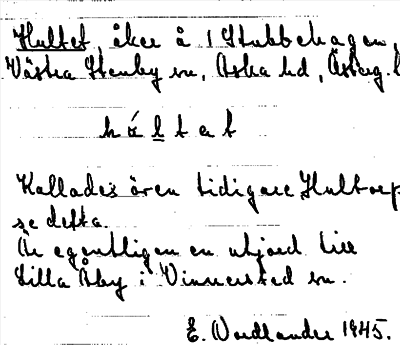 Hultet, åker å 1 Stubbehagen,
Västra Stenby sn, Aska hd, Österg. l
húltat
Kallades även tidigare Hultorp,
se detta.
Är egentligen en utjord till
Lilla Åby i Vinnerstad sn.
E. Nordlander 1945.